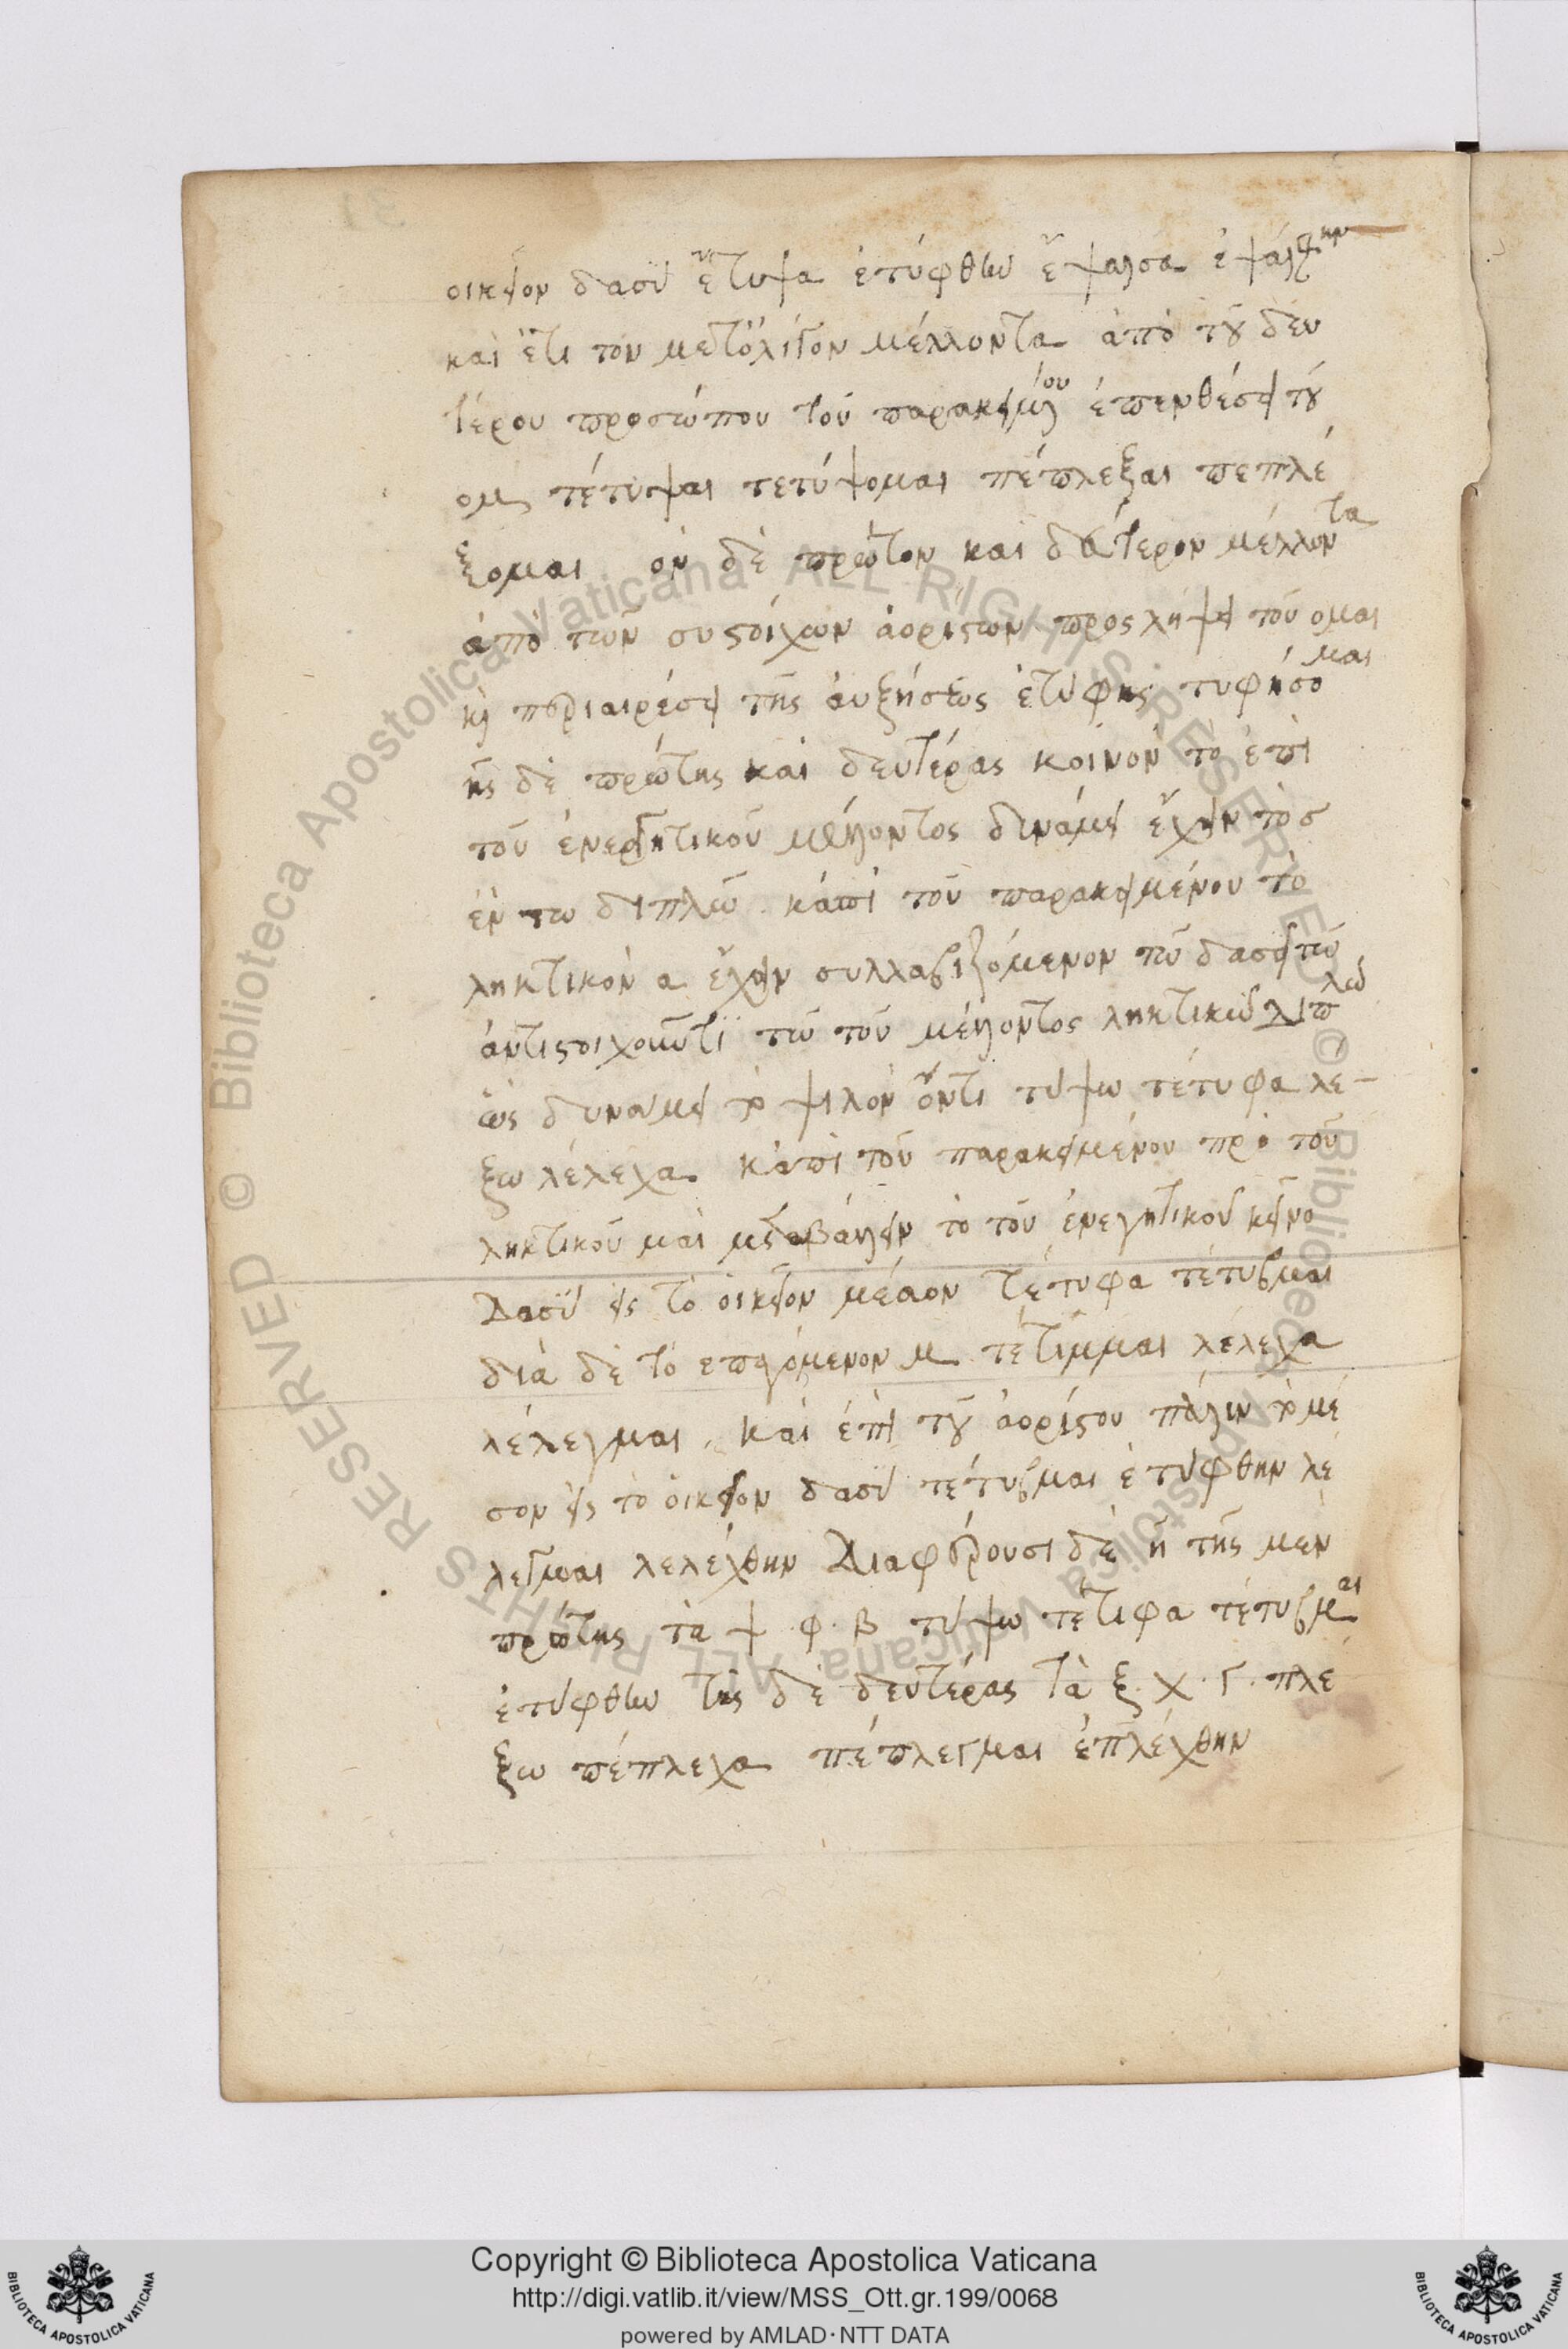 οικεῖον δασύ ἔτυψα ἐτύφθην ἔψαλσα ἐψάλθην
καὶ ἔτι τὸν μετ' ὀλίγον μέλλοντα ἀπὸ τοῦ δευ
τέρου προσώπου τοῦ παρακειμένου ἐπενθέσει τοῦ
ομ τέτυψαι τετύψομαι πέπλεξαι πεπλέ
ξομαι ὁν δὲ πρῶτον καὶ δεύτερον μέλλοντα
ἀπὸ τῶν συστοίχων ἀορίστων προσλήψει τοῦ ομαι
καὶ περιαιρέσει τῆς αὐξήσεως ἐτύφης τυφήσομαι
ῆς δὲ πρώτης καὶ δευτέρας κοινὸν τὸ ἐπὶ
τοῦ ἐνεργητικοῦ μέλλοντος δυνάμει ἔχειν τὸ σ
ἐν τω διπλῶ κἀπὶ τοῦ παρακειμένου τὸ
ληκτικὸν α ἔχειν συλλαβιζόμενον τῶ δασεῖ τῶ
ἀντιστοιχοῦντι τῶ τοῦ μέλλοντος ληκτικῶ διπλῶ
ὡς δυνάμει το ψιλὸν ὄντι τύψω τέτυφα λέ-
ξω λέλεχα κἀπὶ τοῦ παρακειμένου πρὸ τοῦ
ληκτικοῦ μαι μεταβάλλειν τὸ τοῦ ἐνεγητικοῦ κεῖνο
δασύ εἰς τὸ οικεῖον μέσον τέτυφα τέτυβμαι
διὰ δὲ τὸ επαγόμενον μ τέτιμμαι λέλεχα
λέλεγμαι, καὶ ἐπὶ τοῦ ἀορίστου πάλιν το μέ
σον εἰς τὸ οἰκεῖον δασύ τέτυβμαι ἐτύφθην λέ
λεγμαι λελέχθην Διαφέρουσι δὲ ῆ τῆς μεν
πρώτης τὰ ψ. φ. β τύψω τέτιφα τέτυβμαι
ἐτύφθην τῆς δὲ δευτέρας τὰ ξ. χ. γ. πλέ
ξω πέπλεχα πέπλεγμαι ἐπλέχθην
Copyright © Biblioteca Apostolica Vaticana
http://digi.vatlib.it/view/MSS_Ott.gr.199/0068
powered by AMLAD·NTT DATA